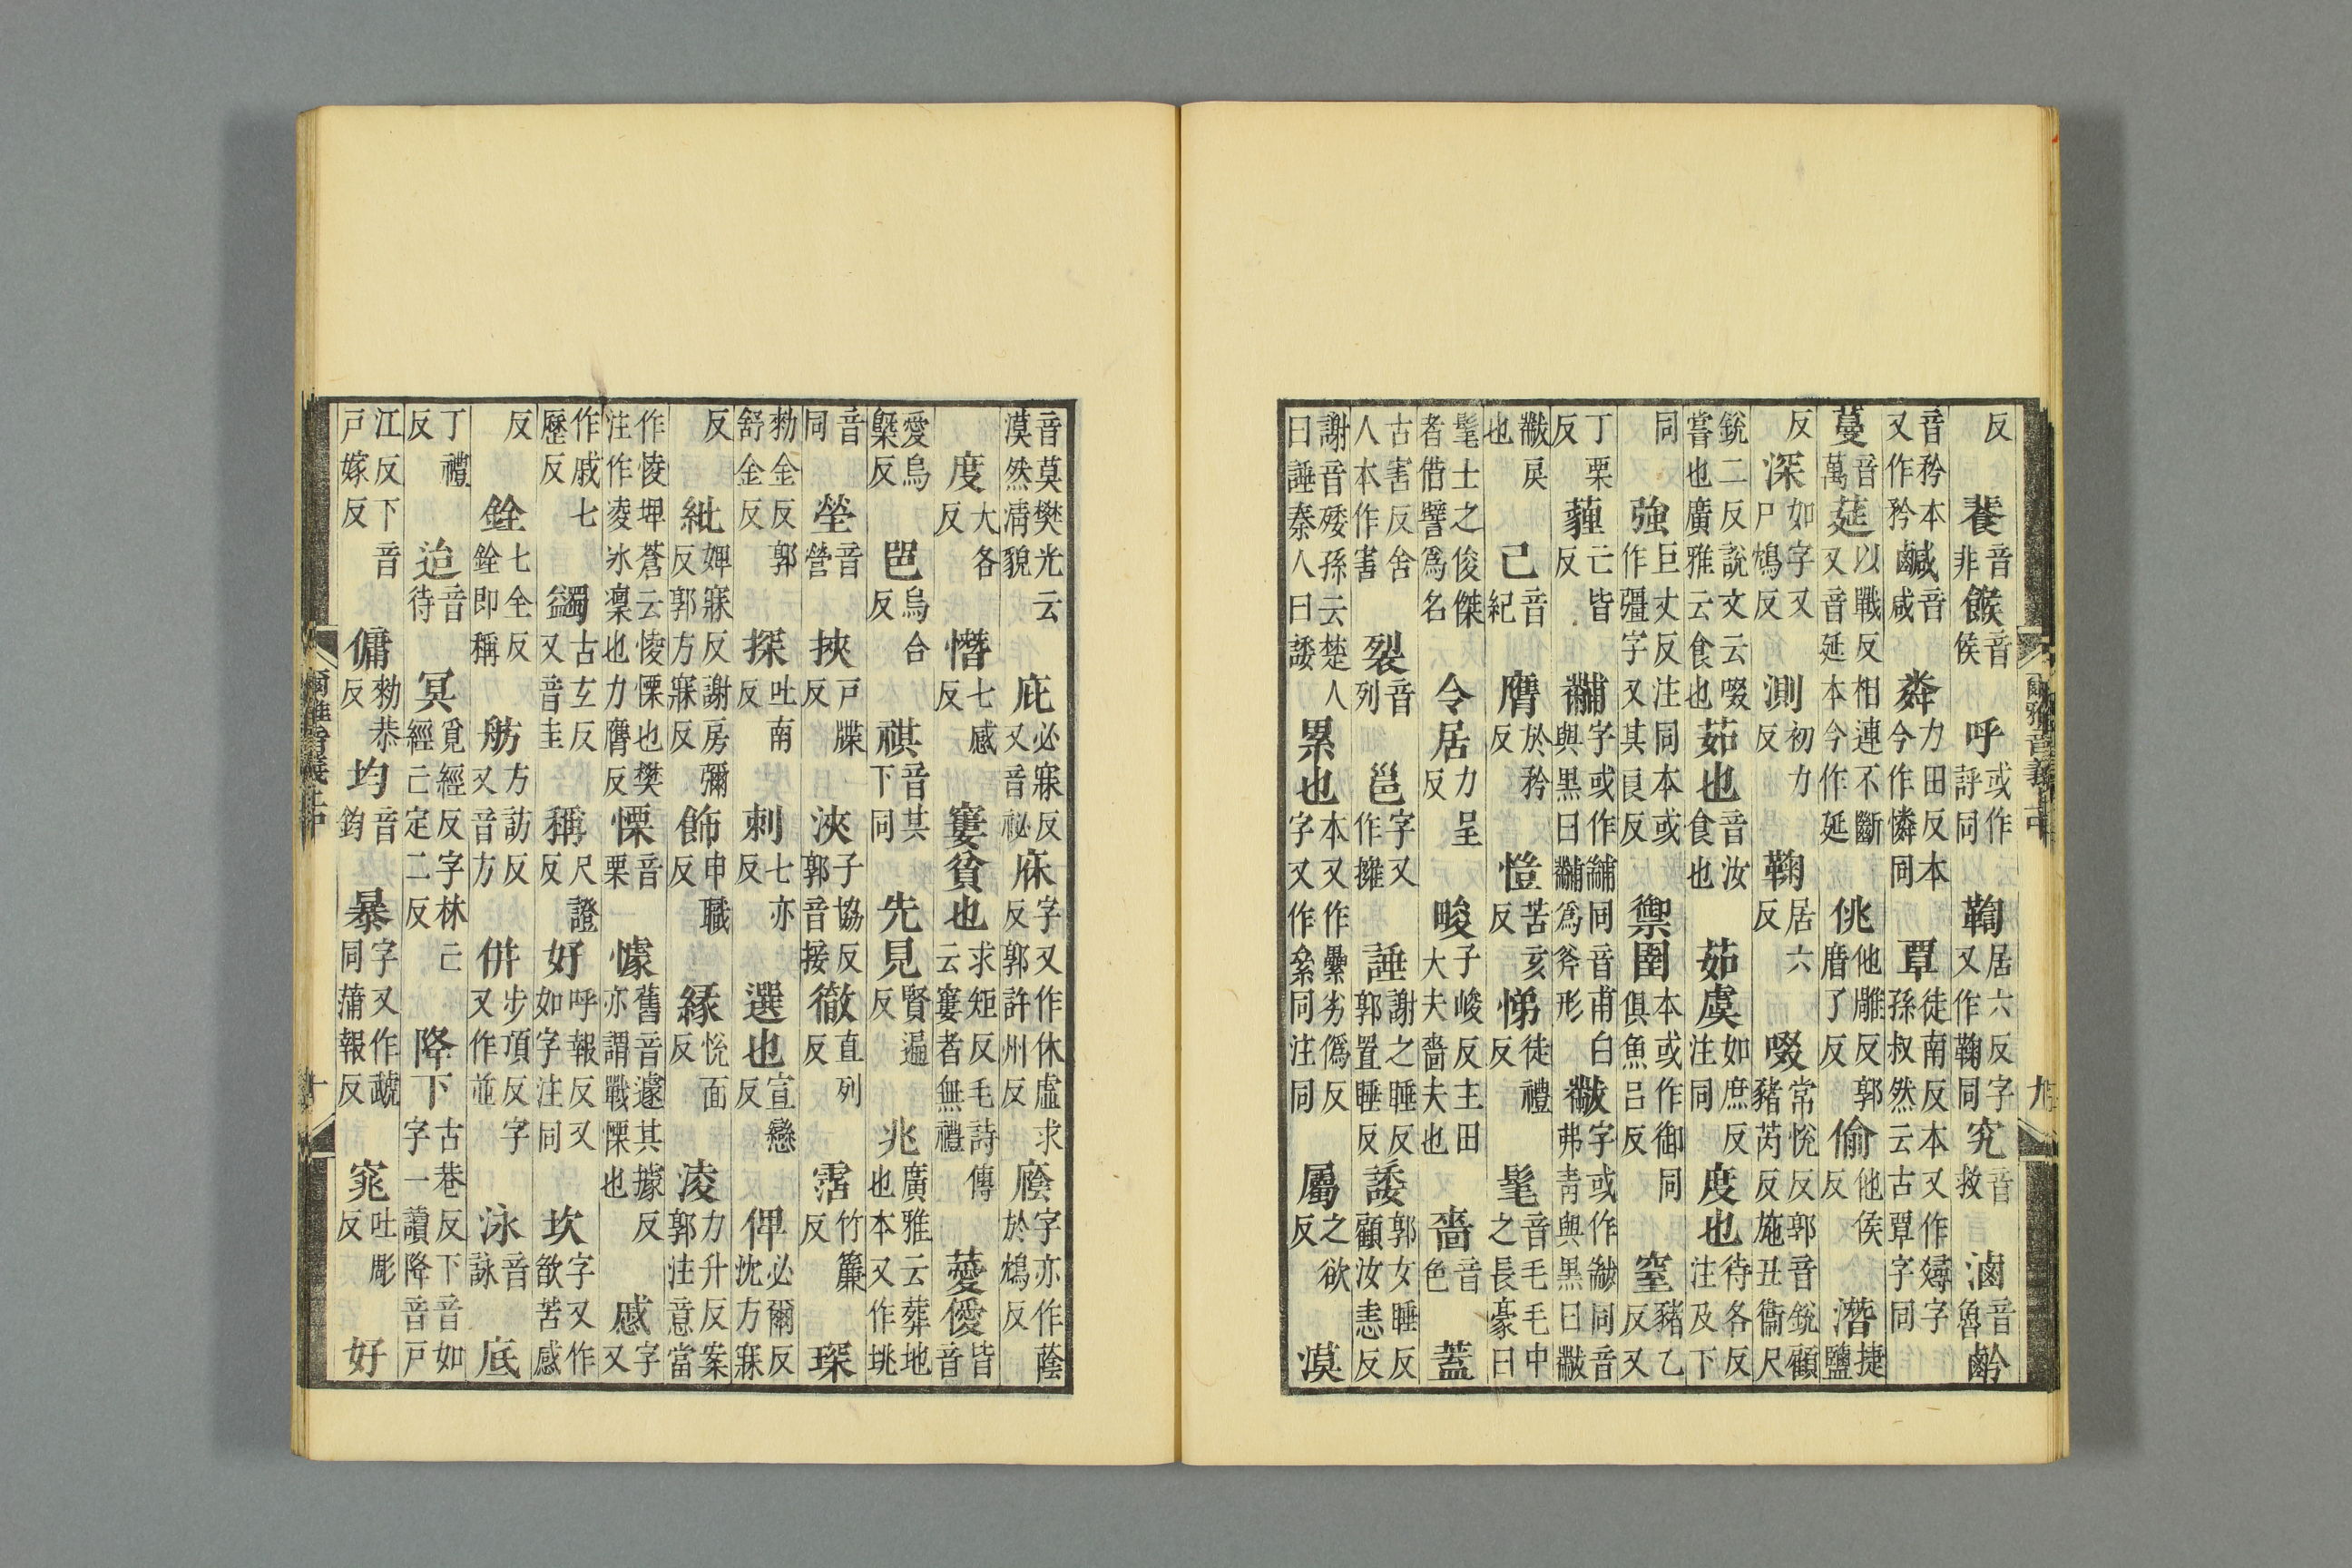 反 餥音非 餱音侯 呼或作評同 鞫居六反字又作鞠同 究音救 滷音魯 齡
音矜本又作矜 鹹音咸 粦力田反本今作憐同 覃徒南反本又作燖字孫叔然云古覃字同
蔓音萬 莚以戰反相連不斷又音延本今作延 佻他雕反郭唐了反 偷他侯反 潛捷鹽
反 深如字又尸鴆反 測初力反 鞠居六反 啜常悅反郭音銳顧豬芮反施丑衞尺
銳二反說文云啜嘗也廣雅云食也 茹也音汝食也 茹虞如庶反注同 度也待各反注及下
同 強巨丈反注同本或作彊字又其良反 禦圉本或作御同俱魚吕反 窒豬乙反又
丁栗反 薶亡皆反 黼字或作䋠同音甫白與黑曰黼黼爲斧形 黻字或作紱同音弗青與黑曰黻
黻戾也 己音紀 膺於矜反 愷苦亥反 悌徒禮反 髦音毛毛中之長豪曰
髦士之俊傑者借譬爲名 令居力呈反 畯子峻反主田大夫嗇夫也 嗇音色 蓋
古害反舍人本作害 裂音列 邕字又作擁 諈謝之睡反郭置睡反 諉郭女睡反顧汝恚反
謝音㛂孫云楚人曰諈秦人曰諉 累也本又作纍劣僞反字又作絫同注同 屬之欲反 漠
音莫樊光云漠然清貌 庇必寐反又音祕 庥字又作休虛求反郭許州反 廕字亦作蔭於鴆反
度大各反 憯七感反 窶貧也求矩反毛詩傳云窶者無禮 薆僾皆音
愛烏槩反 㠱烏合反 祺音其下同 先見賢遍反 兆廣雅云葬地也本又作垗
音同 塋音營 挾戶牒反 浹子協反郭音接 徹直列反 霑竹簾反 琛
勑金反郭舒金反 探吐南反 刺七亦反 選也宣戀反 俾必爾反沈方寐
反 紕婢寐反謝房彌反郭方寐反 飾申職反 緣悅面反 淩力升反案郭注意當
作㥄埤蒼云㥄慄也樊注作淩冰凜也力膺反 慄音栗 懅舊音遽其據反亦謂戰慄也 慼字又
作戚七歷反 蠲古玄反又音圭 稱尺證反 好呼報反又如字注同 坎字又作欿苦感
反 銓七全反銓即稱 舫方訪反又音方 併步頂反字又作並 泳音詠 底
丁禮反 迨音待 冥覓經反字林亡經亡定二反 降下古巷反下音如字一讀降音戶
江反下音戶嫁反 傭勑恭反 均音鈞 暴字又作虣同蒲報反 窕吐彫反 好